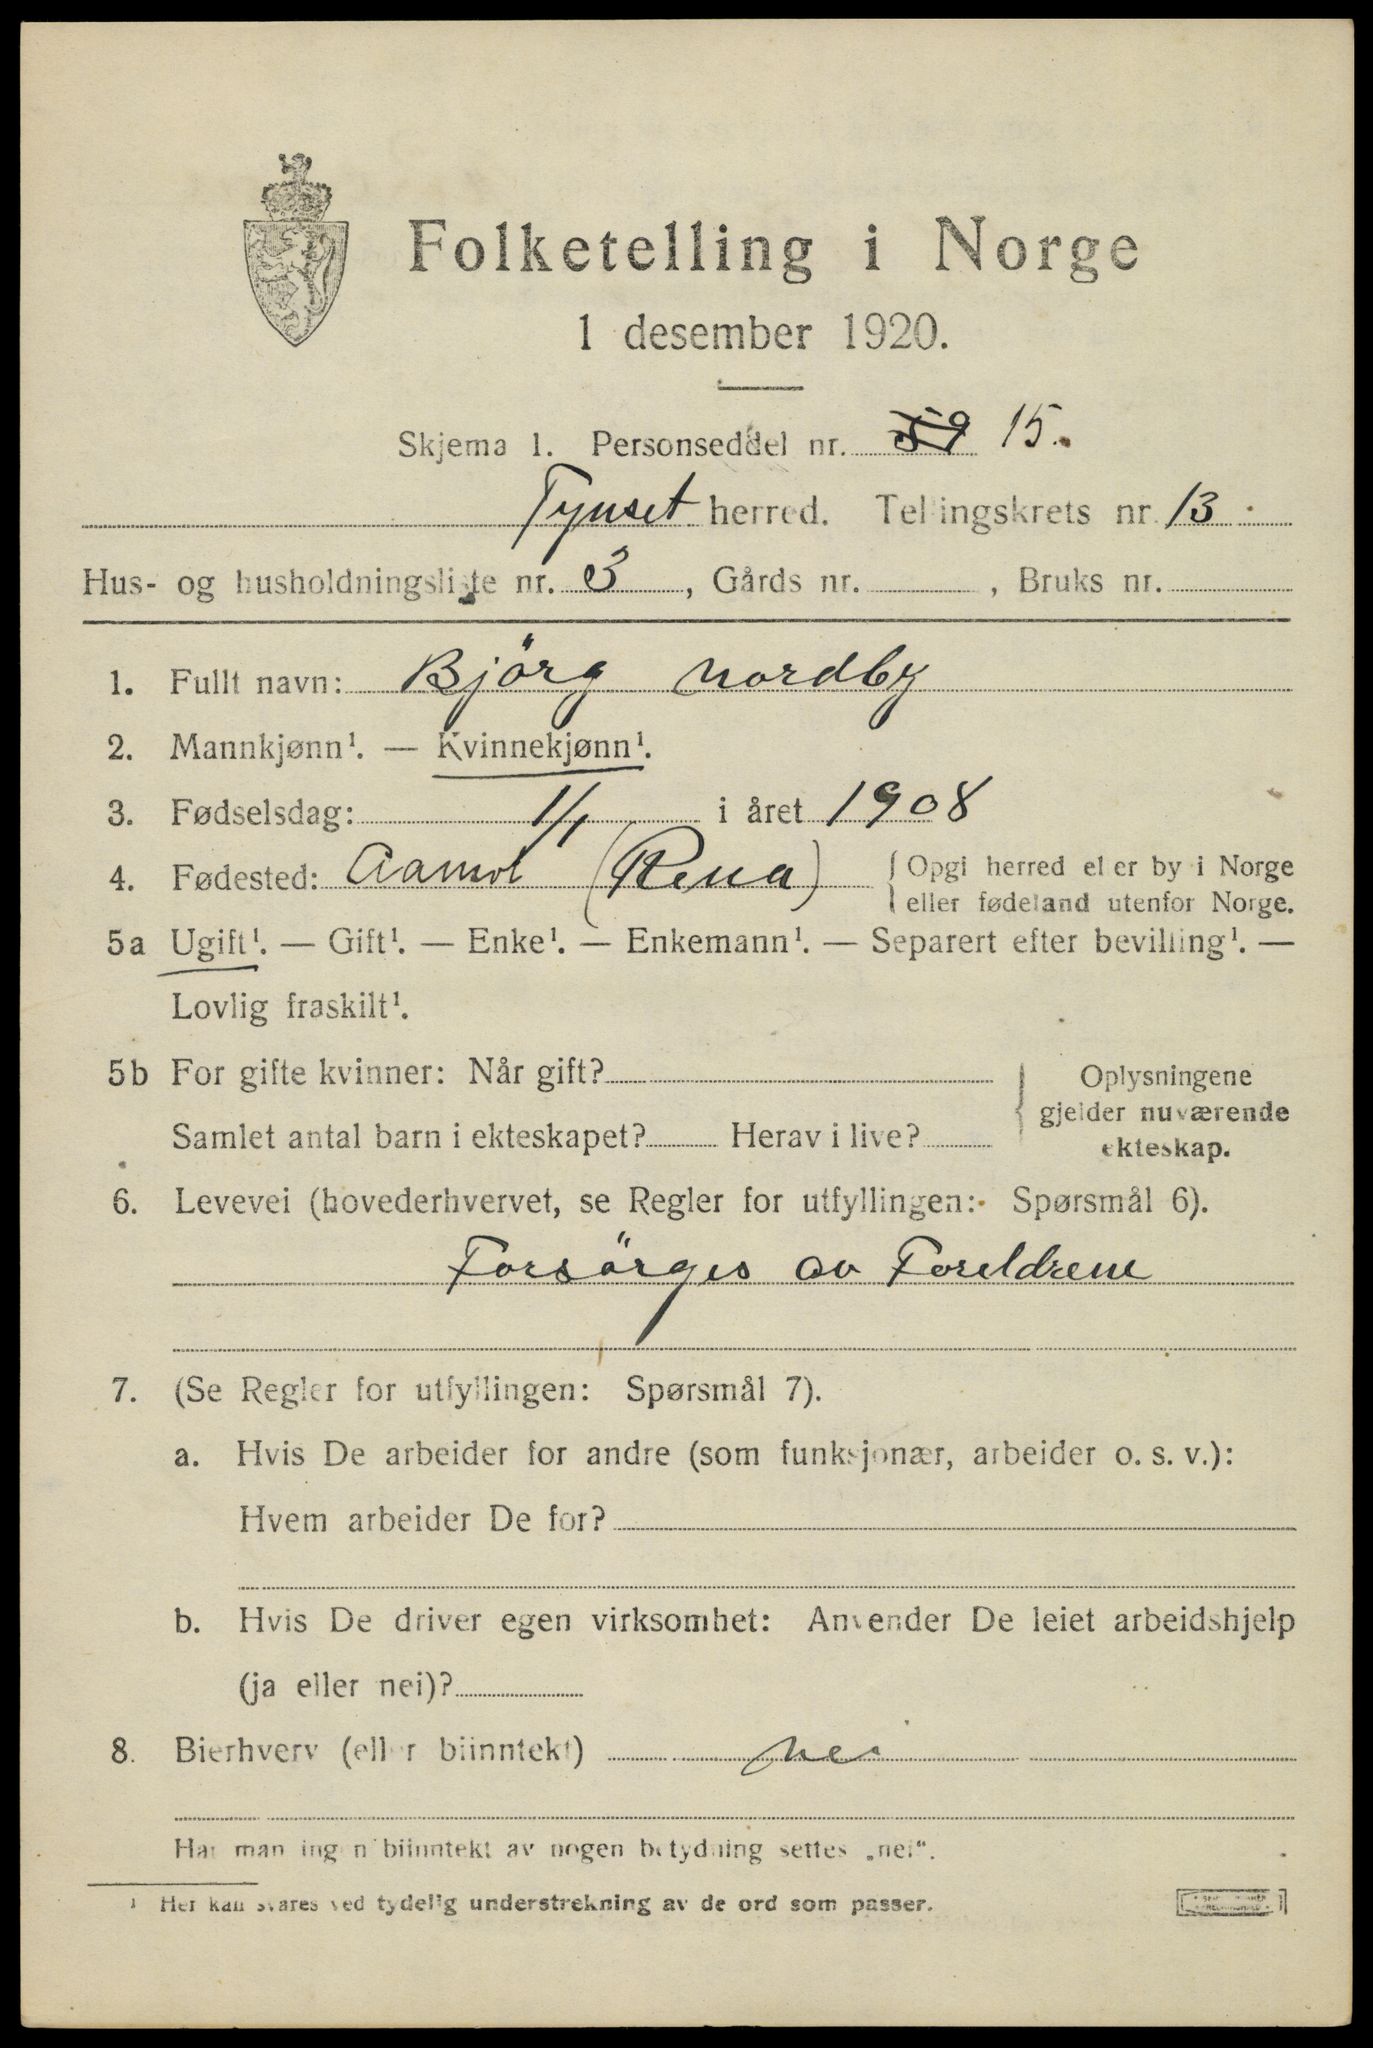 Folketelling i Norge
1 desember 1920.
Skjema 1. Personseddel nr. 59 15.
Tynset herred. Tellingskrets nr. 13
Hus- og husholdningsliste nr. 3, Gårds nr. , Bruks nr.
1. Fullt navn: Björg Nordby
2. Mannkjønn¹. — Kvinnekjønn¹.
3. Fødselsdag: 1/1 i året 1908
4. Fødested: Aamot (Rena) {Opgi herred eller by i Norge
eller fødeland utenfor Norge.
5a Ugift¹. — Gift¹. — Enke¹. — Enkemann¹. — Separert efter bevilling¹. —
Lovlig fraskilt¹.
5b For gifte kvinner: Når gift? } Oplysningene
gjelder nuværende
Samlet antal barn i ekteskapet? Herav i live?
ekteskap.
6. Levevei (hovederhvervet, se Regler for utfyllingen: Spørsmål 6).
Forsörges av Foreldrene
7. (Se Regler for utfyllingen: Spørsmål 7).
a. Hvis De arbeider for andre (som funksjonær, arbeider o. s. v.):
Hvem arbeider De for?
b. Hvis De driver egen virksomhet: Anvender De leiet arbeidshjelp
(ja eller nei)?
8. Bierhverv (eller biinntekt) nei
Har man ingen biinntekt av nogen betydning settes „nei".
¹ Her kan svares ved tydelig understrekning av de ord som passer.